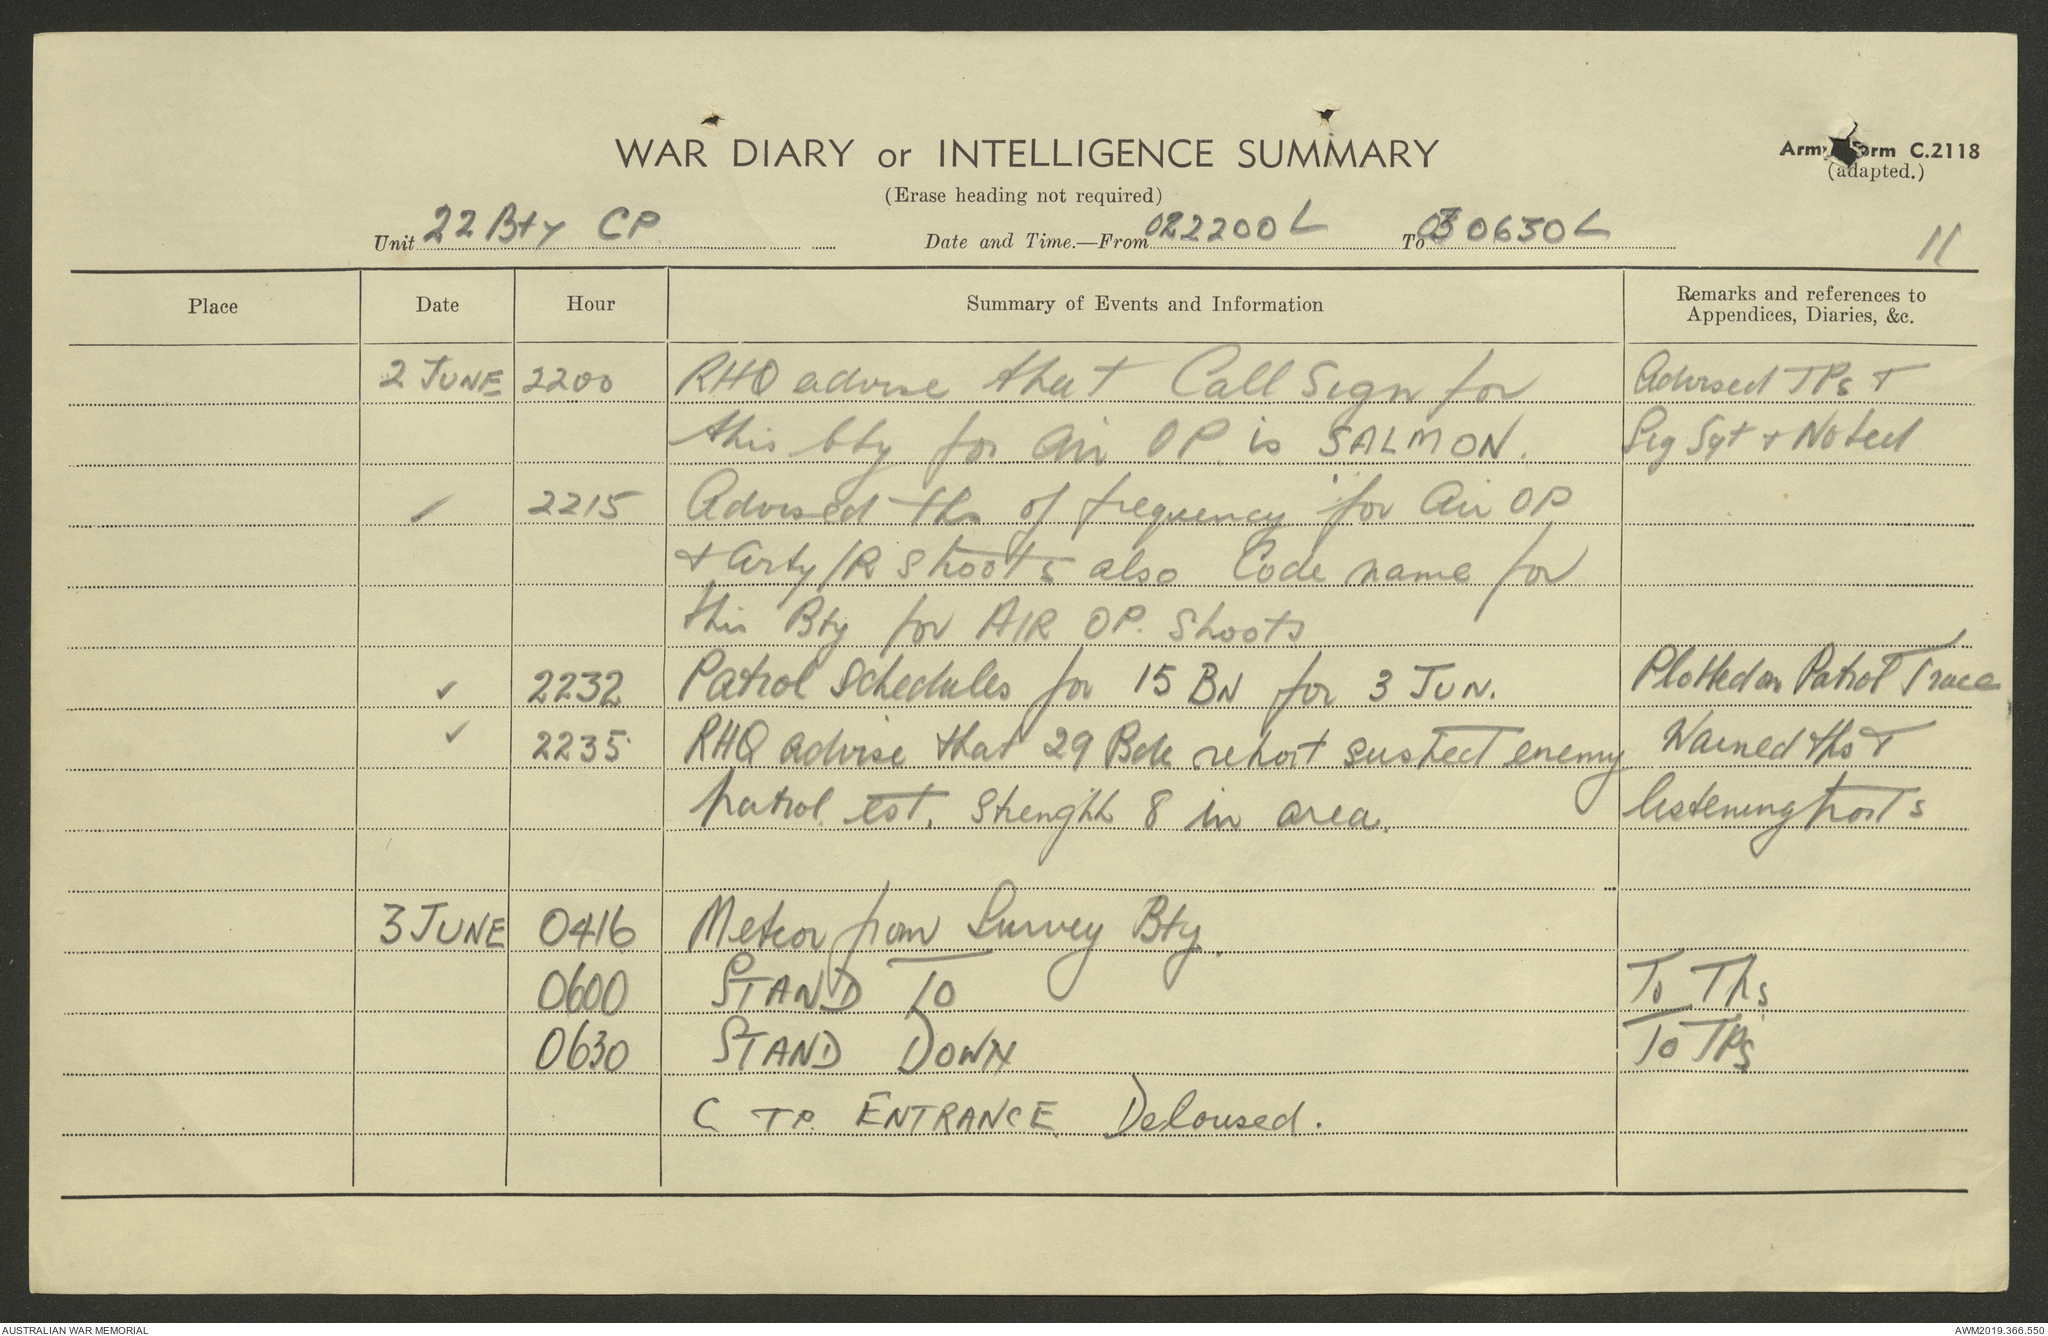 WAR DIARY or INTELLIGENCE SUMMARY
Army Form C.2118
(adapted.)
(Erase heading not required)
Unit 22 Bty CP Date and Time.—From 022200L To 030630L
11
Place Date Hour Summary of Events and Information Remarks and references to Appendices, Diaries, &c.
2 JUNE 2200 RHQ advise that Call Sign for Advised TPs +
this bty for Air OP. is SALMON. Sig Sgt + Noted
✓ 2215 Advised tps of frequency for Air OP
+ Arty/R Shoots also Code name for
this Bty for AIR OP. Shoots
✓ 2232 Patrol Schedules for 15 BN for 3 JUN. Plotted on Patrol Trace
✓ 2235 RHQ advise that 29 Bde report suspect enemy Warned tps +
patrol est. Strength 8 in area. listening posts
3 JUNE 0416 Meteor from Survey Bty.
0600 STAND TO To Tps
0630 STAND DOWN To TPs
C TP. ENTRANCE Deloused.
AUSTRALIAN WAR MEMORIAL
AWM2019.366.550